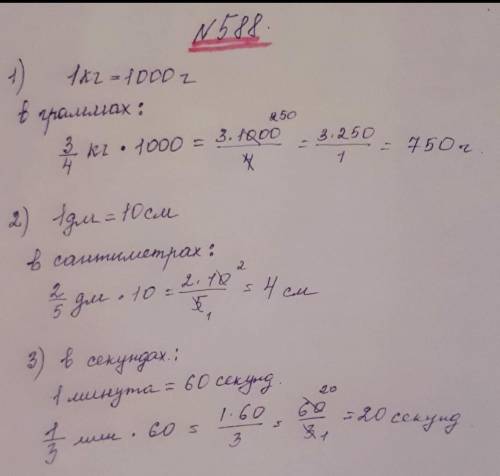 N588.
1) 1кг = 1000 г
в граммах:
3/4 кг · 1000 = 3·1000 250/4 = 3·250/1 = 750 г.
2) 1дм = 10 см
в сантиметрах:
2/5 дм · 10 = 2·10 2/5 1 = 4 см
3) в секундах.:
1 минута = 60 секунд.
1/3 мин · 60 = 1·60/3 = 60 20/3 1 = 20 секунд